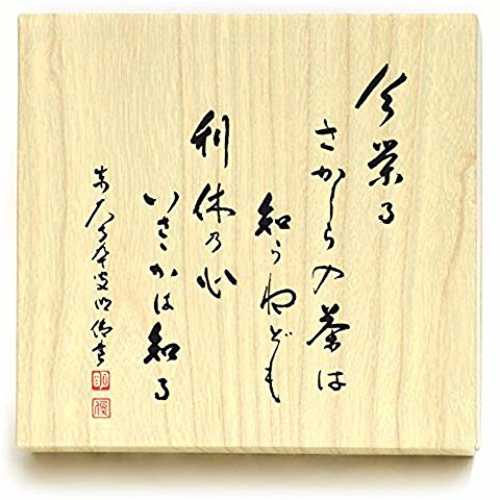 今栄る
さかしらの茶は
知らねども
利休の心
いさかは知る
東大寺